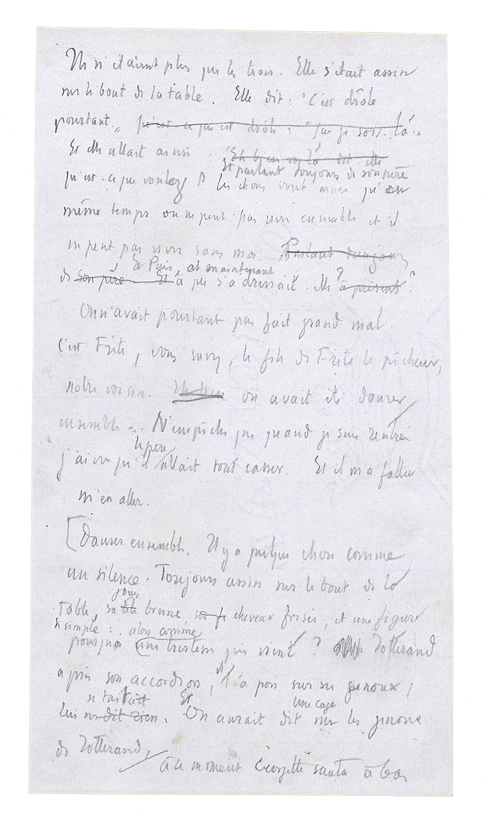 Ils n'étaient plus que les trois. Elle s'était assise
sur le bout de la table. Elle dit : "C'est drôle
pourtant" qu'est-ce qui est drôle : "que je sois là."
Et elle allait ainsi : Eh bien dit elle
Et parlant toujours de son père
qu'est-ce que voulez? les choses vont ainsi qu'en
même temps on ne peut pas vivre ensemble et il
ne peut pas vivre sans moi. Parlant toujours
à Paris, et maintenant
de son père. Et à qui s'adressait-elle à présent?
On n'avait pourtant pas fait grand mal.
C'est Fritz, vous savez, le fils de Fritz le pêcheur,
notre voisin. Eh bien on avait été danser
ensemble... N'empêche que quand je suis rentrée
le père
j'ai cru qu'il allait tout casser. Et il m'a fallu
m'en aller.
[Danser ensemble. Il y a quelque chose comme
un silence. Toujours assise sur le bout de la
joues
table, sa brune, cheveux frisés, et une figure
si simple : alors
pourquoi une tristesse qui vient? Rotterand
a pris son accordion, il l'a posé sur ses genoux ;
se tait Et une cage
lui ne dit rien. On aurait dit sur les genoux
de Rotterand,
à ce moment Georgette sauta à bas